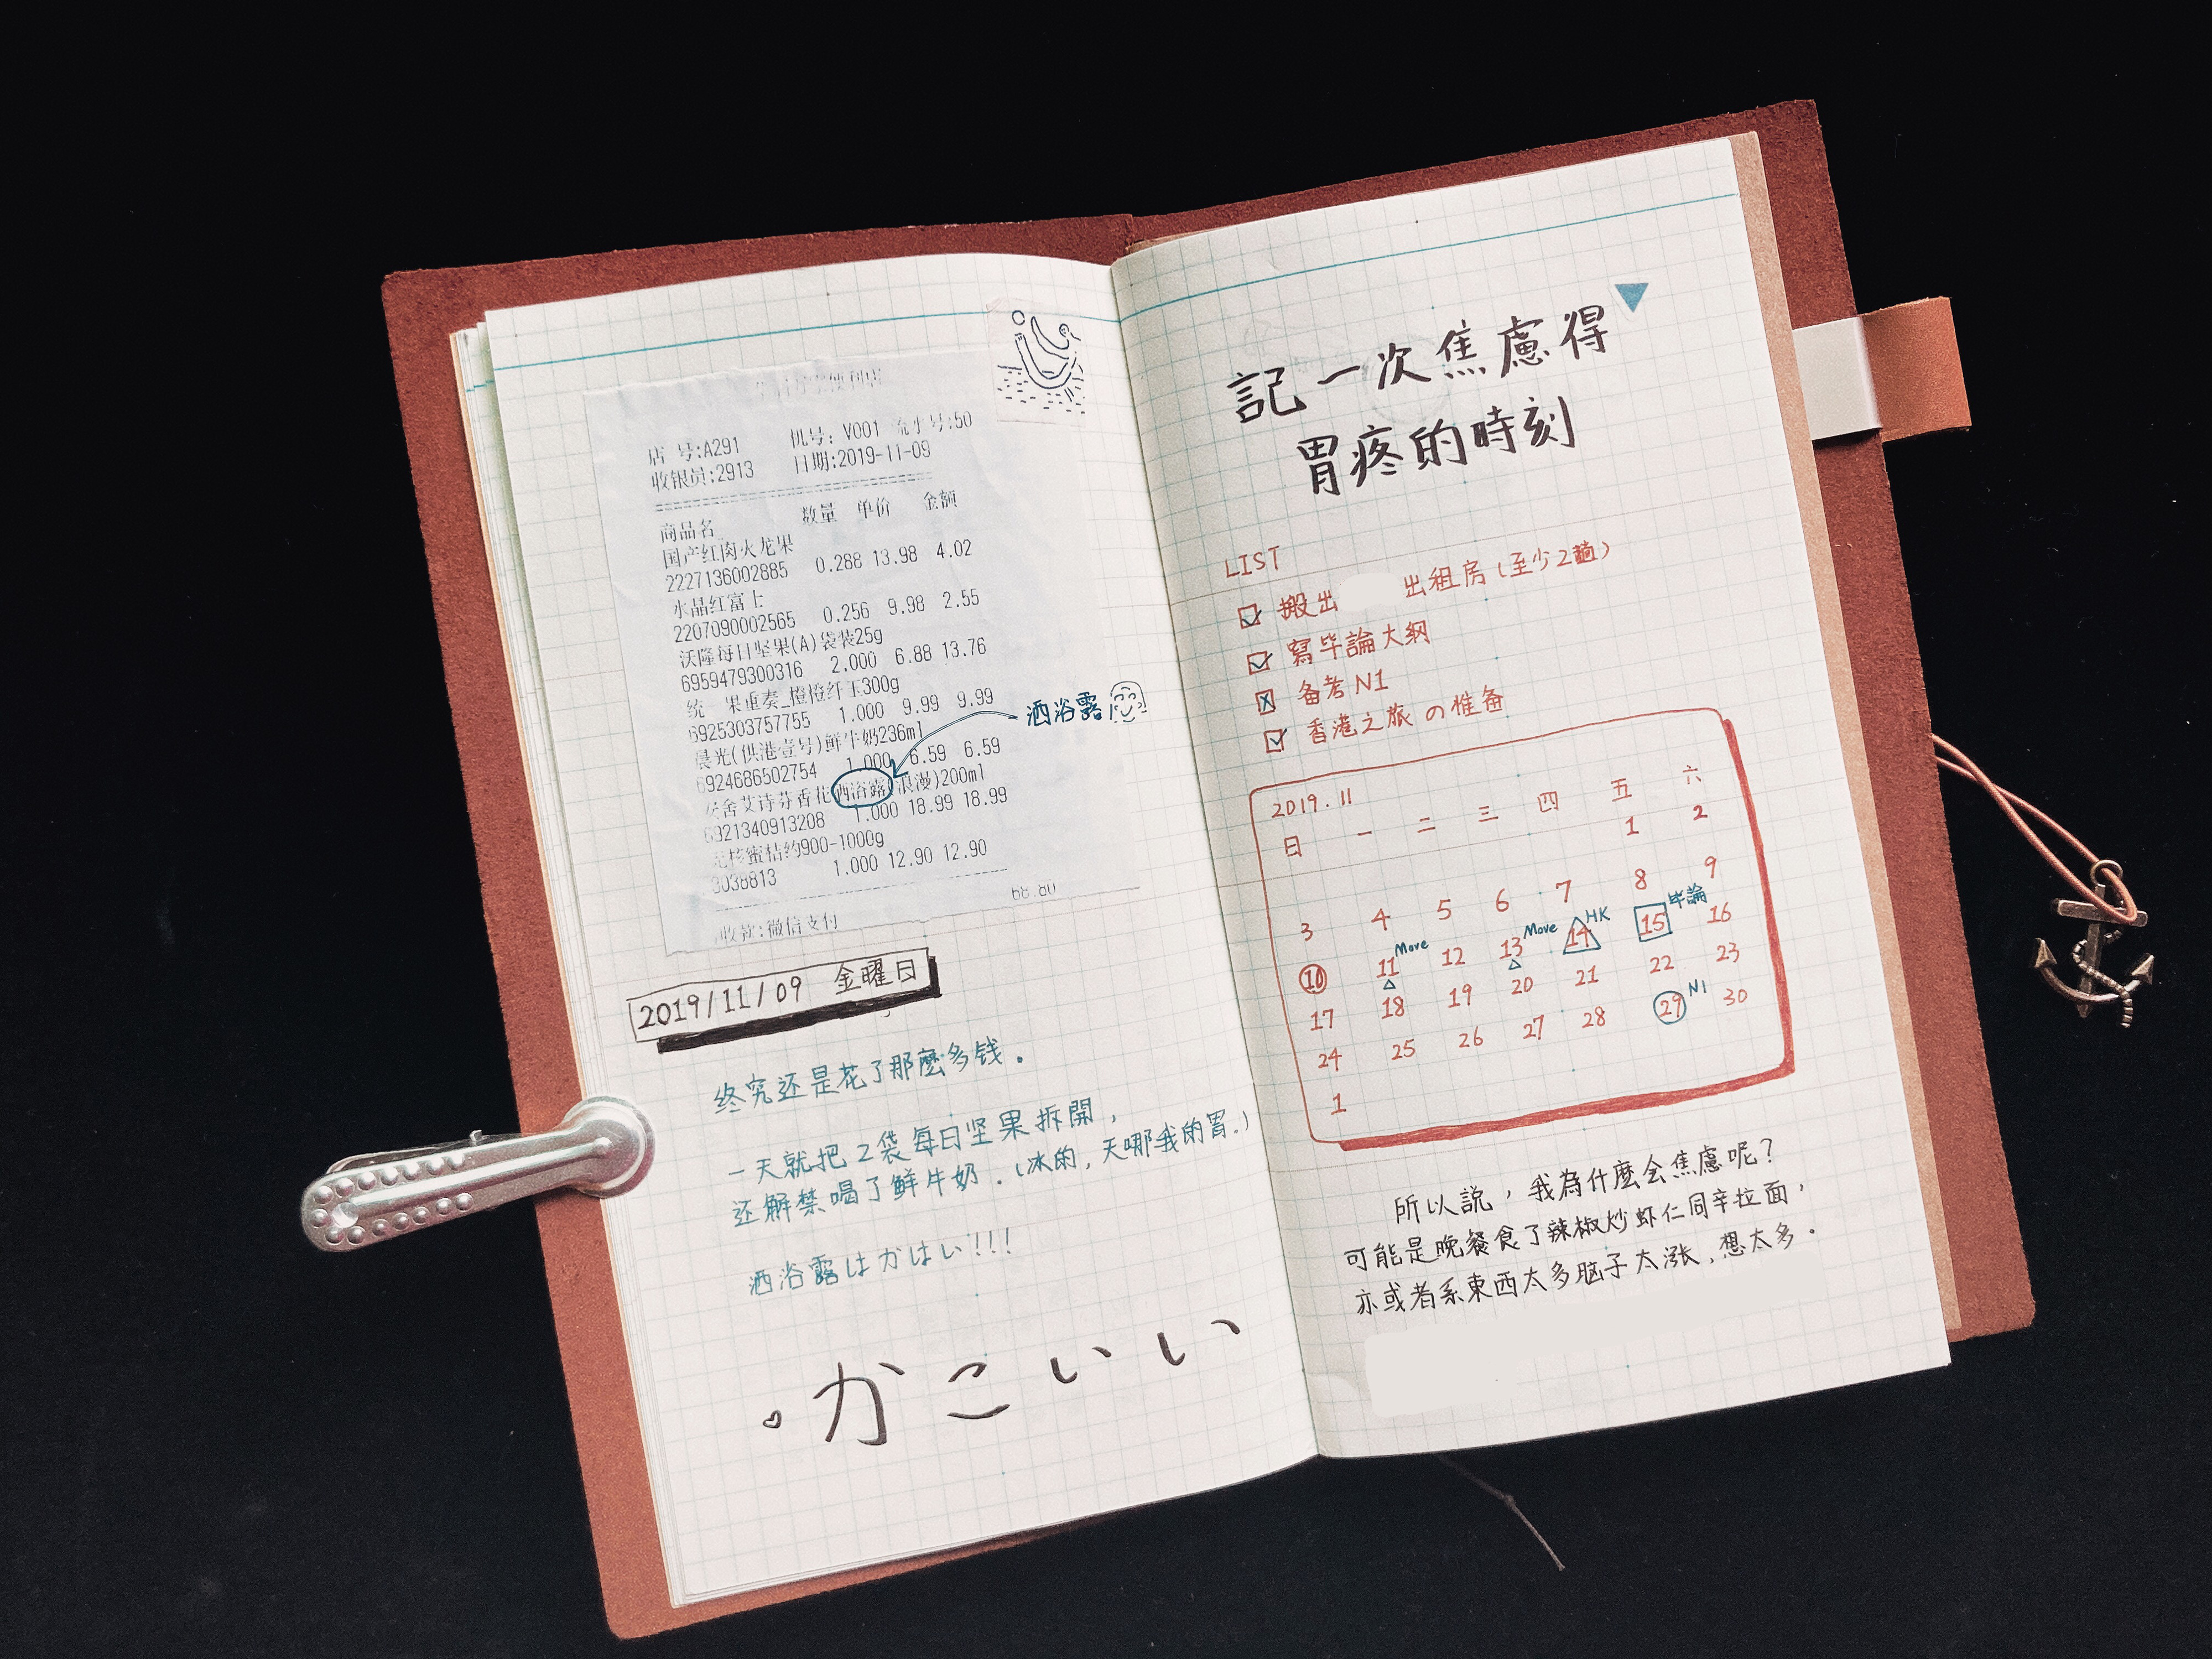 店 号:A291 机号: V001 流水号:50
收银员:2913 日期:2019-11-09
商品名 数量 单价 金额
国产红肉火龙果
2227136002885 0.288 13.98 4.02
水晶红富士
2207090002565 0.256 9.98 2.55
沃隆每日坚果(A)袋装25g
6959479300316 2.000 6.88 13.76
统一果重奏_橙橙纤玉300g
6925303757755 1.000 9.99 9.99
晨光(供港壹号)鲜牛奶236ml
6924686502754 1.000 6.59 6.59
舍艾诗芬香花洒浴露(浪漫)200ml
6921340913208 1.000 18.99 18.99
无核蜜桔约900-1000g
3038813 1.000 12.90 12.90
68.80
收款:微信支付
洒浴露
2019/11/09 金曜日
终究还是花了那麽多钱.
一天就把2袋每日坚果拆開,
还解禁喝了鲜牛奶.(冰的,天哪我的胃.)
洒浴露はかはい!!!
かこいい
記一次焦慮得
胃疼的時刻
LIST
搬出 出租房(至少2趟)
寫毕論大纲
备考N1
香港之旅の惟备
2019.11
日 一 二 三 四 五 六
1 2
3 4 5 6 7 8 9
10 11 Move 12 13 Move 14 HK 15 毕論 16
17 18 19 20 21 22 23
24 25 26 27 28 29 N1 30
1
所以説,我為什麼会焦慮呢?
可能是晚餐食了辣椒炒虾仁同辛拉面,
亦或者系東西太多脑子太涨,想太多.